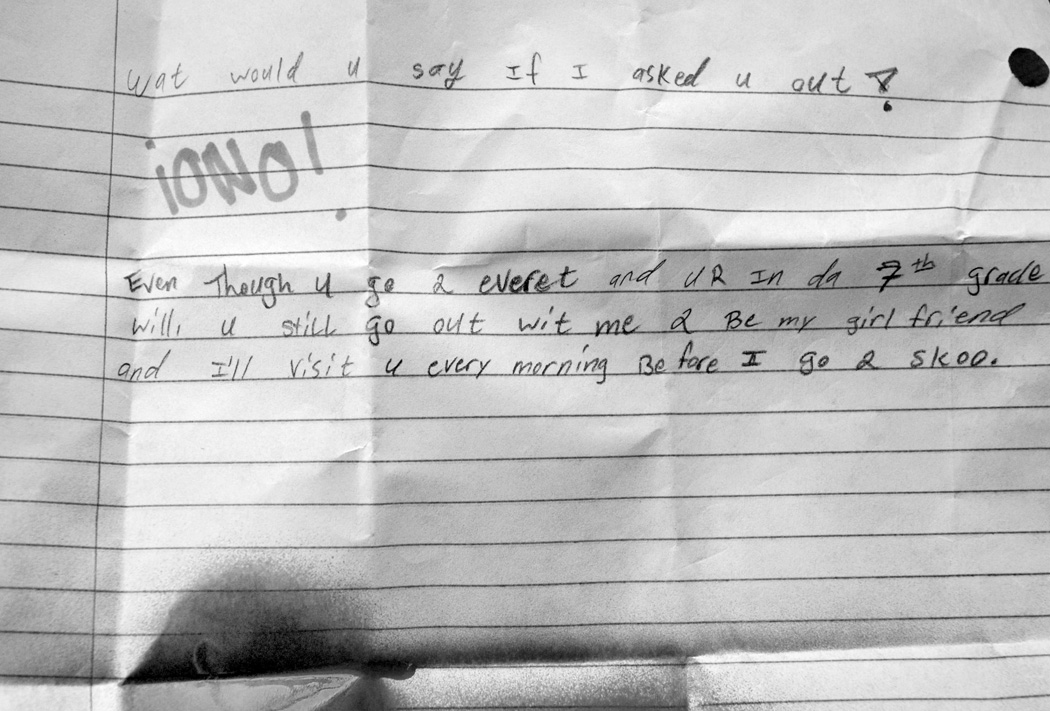 Wat would u say If I asked u out?
iONO!
Even Though u go 2 everet and UR In da 7th grade
will u still go out wit me 2 Be my girl friend
and I'll visit u every morning Before I go 2 skoo.